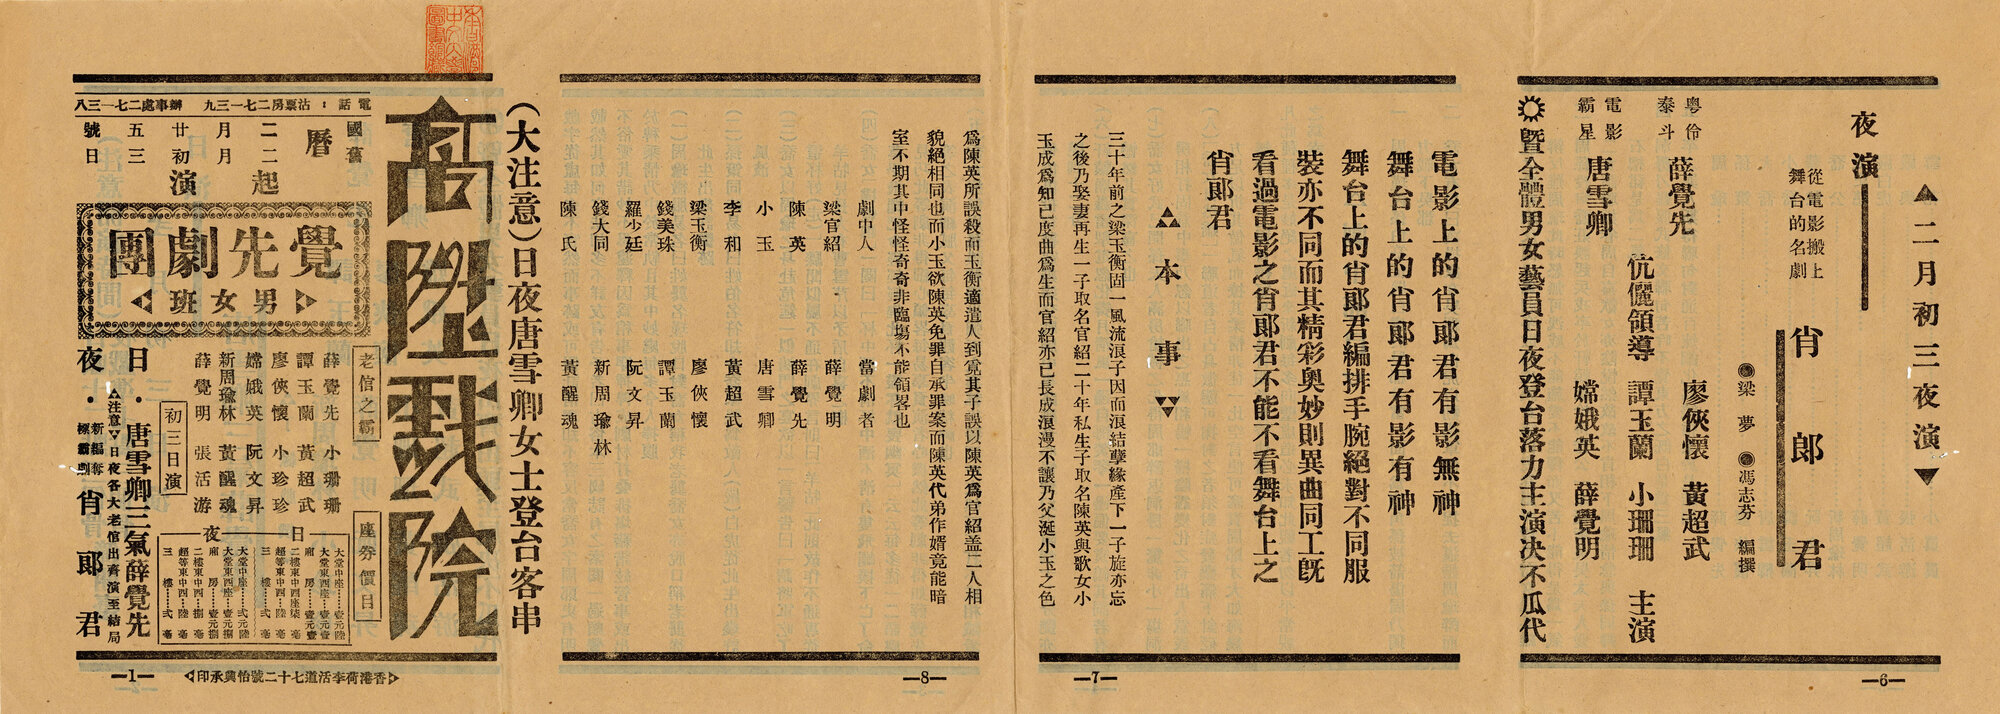 ▲二月初三夜演▼
夜演
從電影搬上
舞台的名劇
肖郎君
●梁夢 ●馮志芬 編撰
粵伶
泰斗
薛覺先
電影
霸星
唐雪卿
伉儷領導
廖俠懷 黃超武
譚玉蘭 小珊珊
嫦娥英 薛覺明
主演
暨全體男女藝員日夜登台落力主演決不瓜代
—6—
電影上的肖郎君有影無神
舞台上的肖郎君有影有神
舞台上的肖郎君編排手腕絕對不同服
裝亦不同而其精彩奧妙則異曲同工旣
看過電影之肖郎君不能不看舞台上之
肖郎君
本事
三十年前之梁玉衡固一風流浪子因而浪結孽緣產下一子旋亦忘
之後乃娶妻再生一子取名官紹二十年私生子取名陳英與歌女小
玉成爲知己度曲爲生而官紹亦已長成浪漫不讓乃父涎小玉之色
—7—
爲陳英所誤殺而玉衡適遣人到覓其子誤以陳英爲官紹盖二人相
貌絕相同也而小玉欲陳英免罪自承罪案而陳英代弟作婿竟能暗
室不期其中怪怪奇奇非臨塲不能領畧也
劇中人 當劇者
梁官紹 薛覺明
陳英 薛覺先
小玉 唐雪卿
李和 黃超武
梁玉衡 廖俠懷
錢美珠 譚玉蘭
羅少廷 阮文昇
錢大同 新周瑜林
陳氏 黃醒魂
—8—
(大注意)日夜唐雪卿女士登台客串
高陞戲院
電話:沽票房二七一三九 辦事處二七一三八
國舊
曆
二二
月月
起
廿初
演
五三
號日
覺先劇團
男女班
老倌之霸
薛覺先 小珊珊
譚玉蘭 黃超武
廖俠懷 小珍珍
嫦娥英 阮文昇
新周瑜林 黃醒魂
薛覺明 張活游
座券價目
日
大堂中座…壹元陸
大堂東西座…壹元壹
廂房…壹元壹
二樓東中西座柒毫
超等東中西…陸毫
三樓…弍毫
夜
大堂中座…弍元陸
大堂東西座…壹元捌
廂房…壹元捌
二樓東中西…捌毫
超等東中西…陸毫
三樓…弍毫
初三日演
日・唐雪卿三氣薛覺先
▲注意▼日夜各大老倌出齊演至結局
夜・新編奪標霸劇 肖郎君
香港荷李活道七十二號怡興承印
—1—